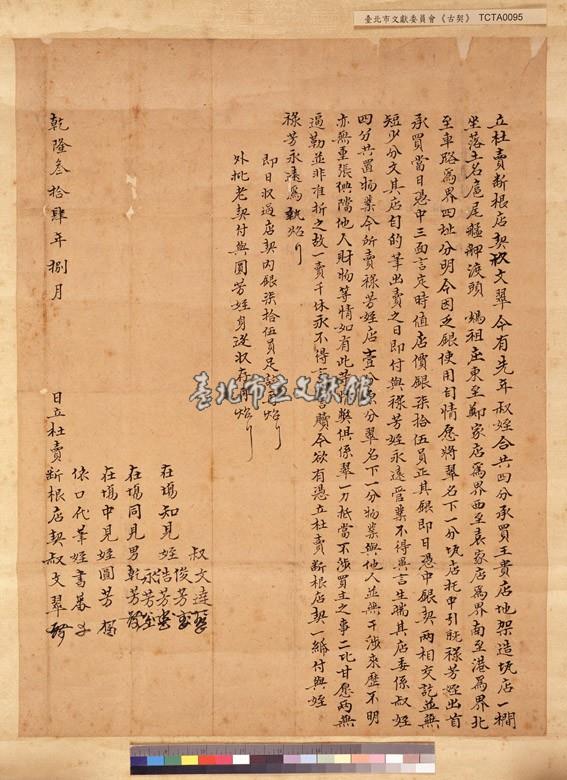 臺北市文獻委員會《古契》 TCTA0095
立杜賣斷根店契叔文翠今有先年叔姪合共四分承買王貴店地架造坑店一櫊
坐落土名扈尾艋舺渡頭 媽祖庄東至鄭家店為界西至袁家店為界南至港為界北
至車路為界四址分明今因乏銀使用自情愿將翠名下一分坑店托中引就祿芳姪出首
承買當日憑中三面言定時值店價銀柒拾伍員正其銀即日憑中銀契兩相交訖並無
短少分文其店自的筆出賣之日即付與祿芳姪永遠管業不得異言生端其店委係叔姪
四分共置物業今所賣祿芳姪店壹分為分翠名下一分物業與他人並無干涉來歷不明
亦無重張典掛他人財物等情如有此契俱係翠一力抵當不涉買主之事二比甘愿兩無
逼勒並非准折之故一賣千休永不得言贖今欲有憑立杜賣斷根店契一紙付與姪
祿芳永遠為執炤
即日收過店契內銀柒拾伍員足訖炤
外批老契付與圓芳姪身邊收存炤
叔文達
在場知見姪俊芳
浩芳
永芳
在場同見男乾芳
在場中見姪圓芳
依口代筆姪書
乾隆叁拾肆年捌月 日立杜賣斷根店契叔文翠
臺北市立文獻館